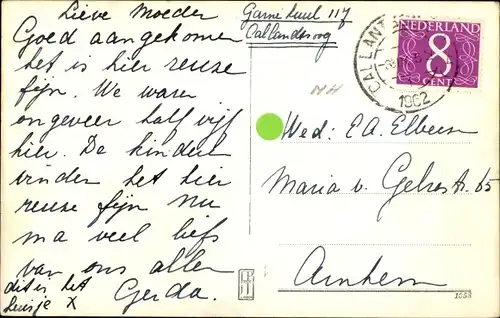 Lieve Moeder
Goed aangekomen
het is hier reuze
fijn. We waren
ongeveer half vijf
hier. De kinderen
vinden het hier
reuze fijn nu
ma veel liefs
van ons allen
Gerda.
dit is het
huisje X
117
Callandsoog
CALLANTSOOG
1962
NEDERLAND
8
CENT
Wed: E.A. Elbers
Maria v. Gelrestr. 65
Arnhem
1053